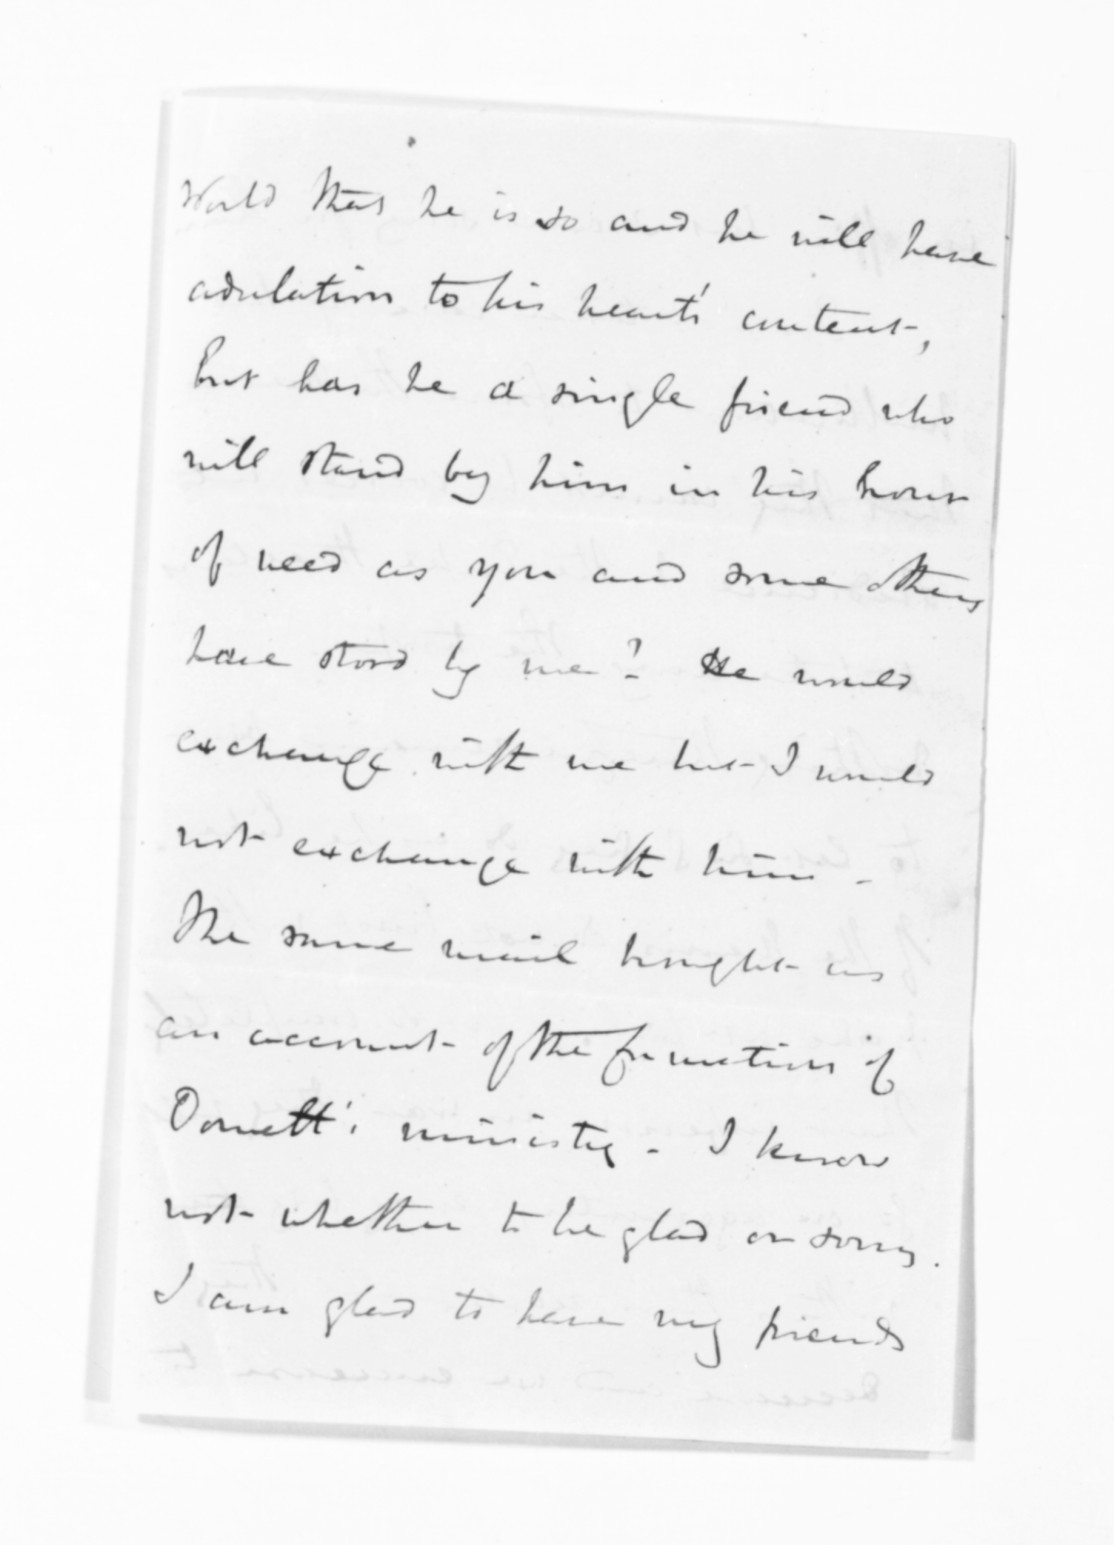 World that he is so and he will have
adulation to his heart's content,
but has he a single friend who
will stand by him in his hour
of need as you and some others
have stood by me? He would
exchange with me but I would
not exchange with him -
The same mail brought us
an account of the formation of
Domett's ministry - I know
not whether to be glad or sorry.
I am glad to have my friends